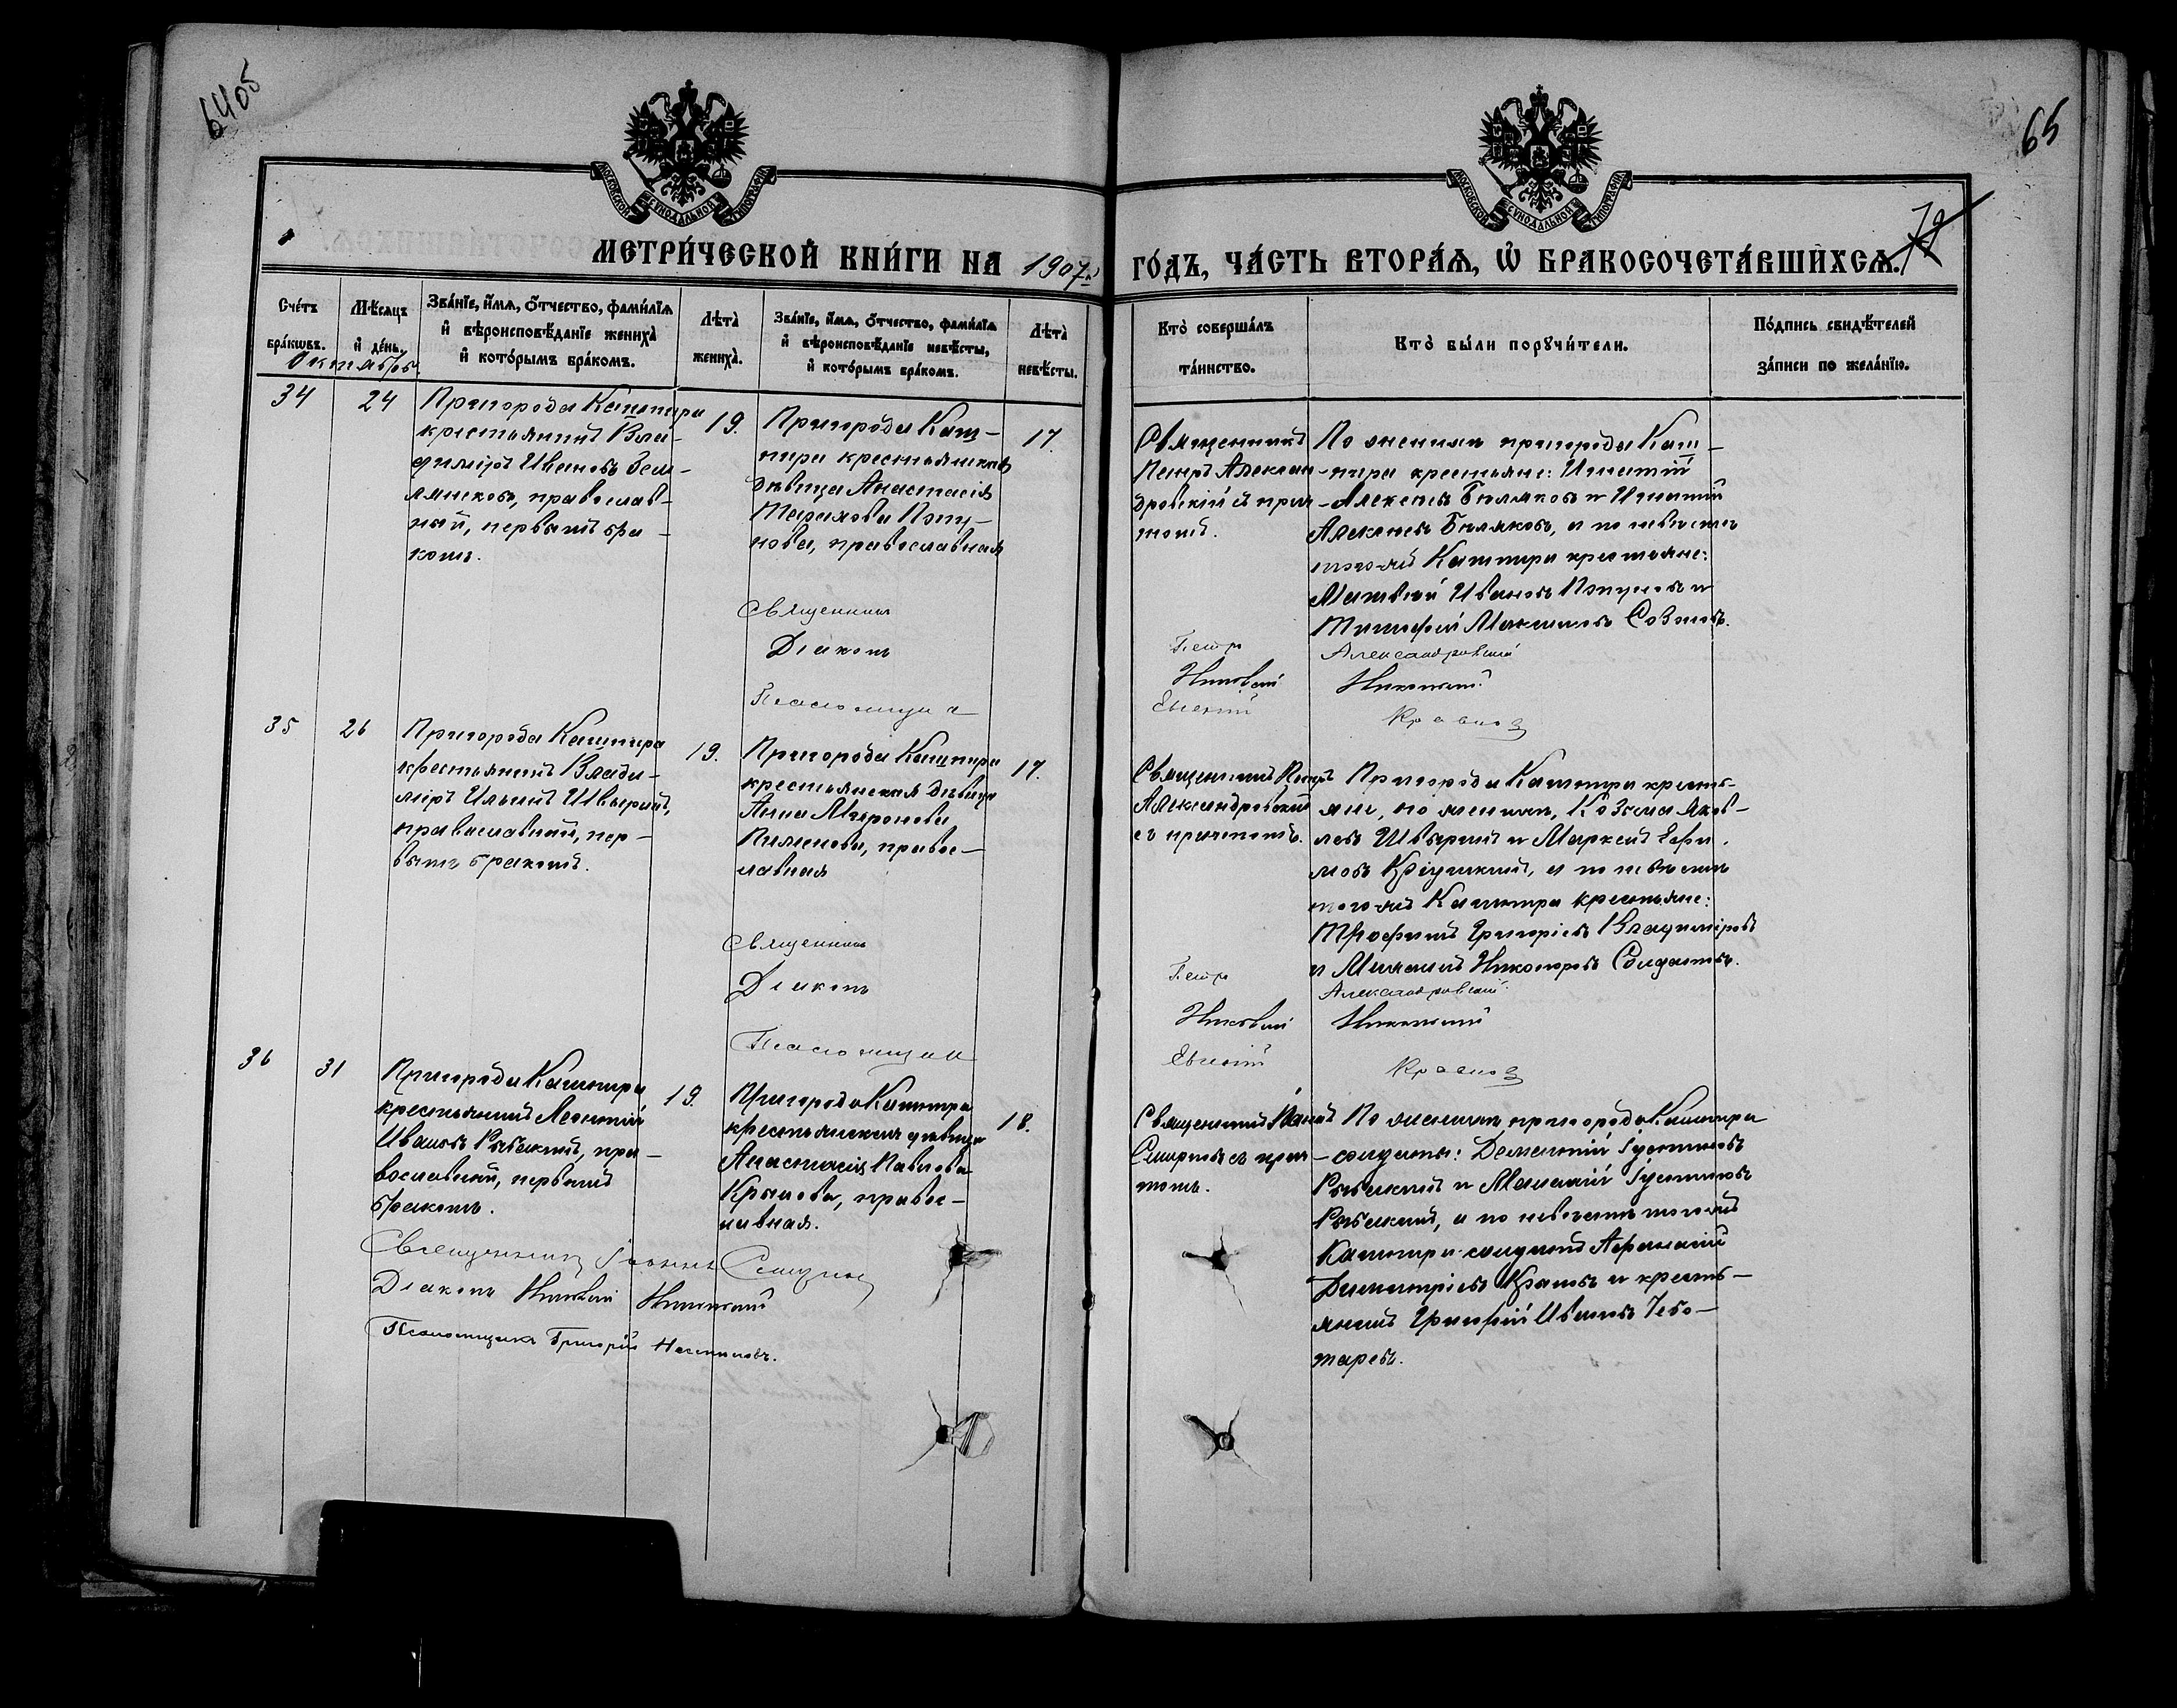 64об
65
МОСКОВСКОЙ СУНОДАЛЬНОЙ ТИПОГРАФИИ
МОСКОВСКОЙ СУНОДАЛЬНОЙ ТИПОГРАФИИ
72
МЕТРИ́ЧЕСКОЙ КНИ́ГИ НА 1907
ГО́ДЪ, ЧА́СТЬ ВТОРА́Ѧ, Ѡ҆ БРАКОСОЧЕТА́ВШИХСѦ.
Сче́тъ
бра́кѡвъ.
Мѣ́сѧцъ
и҆ де́нь.
Зва́нїе, и҆́мѧ, ѻ҆́тчество, фами́лїѧ
и҆ вѣроисповѣ́данїе жениха̀
и҆ кото́рымъ бра́комъ.
Лѣта̀
жениха̀.
Зва́нїе, и҆́мѧ, ѻ҆́тчество, фами́лїѧ
и҆ вѣроисповѣ́данїе невѣ́сты,
и҆ кото́рымъ бра́комъ.
Лѣта̀
невѣ́сты.
Кто̀ соверша́лъ
та́инство.
Кто̀ бы́ли порꙋчи́тели.
По́дпись свидѣ́телей
за́писи по жела́нїю.
Октябрь
34
24
Пригорода Кашпира
крестьянинъ Вла-
димiръ Ивановъ Зем-
лянсковъ, православ-
ный, первымъ бра-
комъ.
19.
Пригорода Каш-
пира крестьянская
дѣвица Анастасiя
Тарахова Попу-
нова, православная
17.
Священникъ
Петръ Алексан-
дровскiй съ прич-
томъ.
По женихѣ пригорода Каш-
пира крестьяне: Игнатiй
Алексѣевъ Бѣляковъ и Игнатiй
Алексѣевъ Бѣляковъ, а по невѣстѣ
того-жъ Кашпира крестьяне:
Матвѣй Ивановъ Попуновъ и
Тимофей Максимовъ Созоновъ.
Священникъ Петръ Александровскiй
Дiаконъ Николай Никольскiй
Псаломщикъ Евгенiй Красновъ
35
26
Пригорода Кашпира
крестьянинъ Влади-
мiръ Ильинъ Швыринъ,
православный, пер-
вымъ бракомъ.
19.
Пригорода Кашпира
крестьянская дѣвица
Анна Миронова
Пименова, правос-
лавная
17.
Священникъ Петръ
Александровскiй
съ причтомъ.
Пригорода Кашпира кресть-
яне, по женихѣ, Козьма Яков-
левъ Швыринъ и Маркелъ Ефи-
мовъ, а по невѣстѣ
того-жъ Кашпира крестьяне:
Трофимъ Григорiевъ Владимiровъ
и Михаилъ Никоноровъ Солдатовъ.
Священникъ Петръ Александровскiй
Дiаконъ Николай Никольскiй
Псаломщикъ Евгенiй Красновъ
36
31
Пригорода Кашпира
крестьянинъ Леонтiй
Ивановъ Рыбакинъ, пра-
вославный, первымъ
бракомъ.
19.
Пригорода Кашпира
крестьянская дѣвица
Анастасiя Павлова
Крылова, правос-
лавная.
18.
Священникъ Iоаннъ
Смирновъ съ прич-
томъ.
По женихѣ, пригорода Кашпира
солдаты: Дементiй Iустиновъ
Рыбакинъ и Iустиновъ
Рыбакинъ, а по невѣстѣ того-жъ
Кашпира солдатъ Афанасiй
Димитрiевъ Крыловъ и кресть-
янинъ Григорiй Ивановъ Чебо-
таревъ.
Священникъ Iоаннъ Смирновъ
Дiаконъ Николай Никольскiй
Псаломщикъ Григорiй